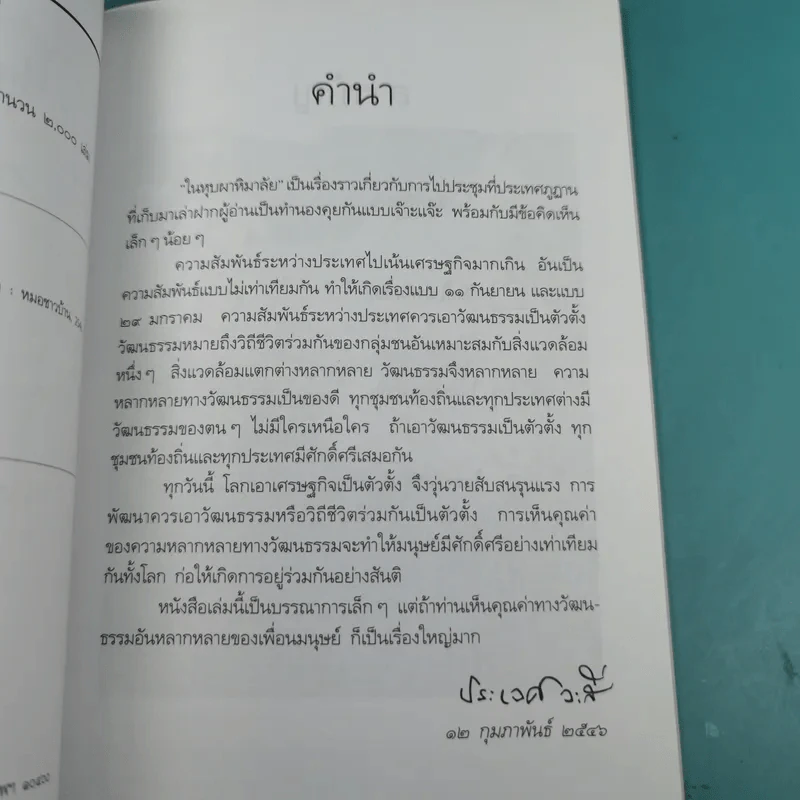 านวน ๒,๐๐๐ เล่ม
: หมอชาวบ้าน,
๑๐๔๐๐
คำนำ
"ในหุบผาหิมาลัย" เป็นเรื่องราวเกี่ยวกับการไปประชุมที่ประเทศภูฏาน
ที่เก็บมาเล่าฝากผู้อ่านเป็นทำนองคุยกันแบบเจ๊าะแจ๊ะ พร้อมกับมีข้อคิดเห็น
เล็ก ๆ น้อย ๆ
ความสัมพันธ์ระหว่างประเทศไปเน้นเศรษฐกิจมากเกิน อันเป็น
ความสัมพันธ์แบบไม่เท่าเทียมกัน ทำให้เกิดเรื่องแบบ ๑๑ กันยายน และแบบ
๒๙ มกราคม ความสัมพันธ์ระหว่างประเทศควรเอาวัฒนธรรมเป็นตัวตั้ง
วัฒนธรรมหมายถึงวิถีชีวิตร่วมกันของกลุ่มชนอันเหมาะสมกับสิ่งแวดล้อม
หนึ่ง ๆ สิ่งแวดล้อมแตกต่างหลากหลาย วัฒนธรรมจึงหลากหลาย ความ
หลากหลายทางวัฒนธรรมเป็นของดี ทุกชุมชนท้องถิ่นและทุกประเทศต่างมี
วัฒนธรรมของตน ๆ ไม่มีใครเหนือใคร ถ้าเอาวัฒนธรรมเป็นตัวตั้ง ทุก
ชุมชนท้องถิ่นและทุกประเทศมีศักดิ์ศรีเสมอกัน
ทุกวันนี้ โลกเอาเศรษฐกิจเป็นตัวตั้ง จึงวุ่นวายสับสนรุนแรง การ
พัฒนาควรเอาวัฒนธรรมหรือวิถีชีวิตร่วมกันเป็นตัวตั้ง การเห็นคุณค่า
ของความหลากหลายทางวัฒนธรรมจะทำให้มนุษย์มีศักดิ์ศรีอย่างเท่าเทียม
กันทั้งโลก ก่อให้เกิดการอยู่ร่วมกันอย่างสันติ
หนังสือเล่มนี้เป็นบรรณาการเล็ก ๆ แต่ถ้าท่านเห็นคุณค่าทางวัฒน-
ธรรมอันหลากหลายของเพื่อนมนุษย์ ก็เป็นเรื่องใหญ่มาก
ประเวศ วะสี
๑๒ กุมภาพันธ์ ๒๕๔๖